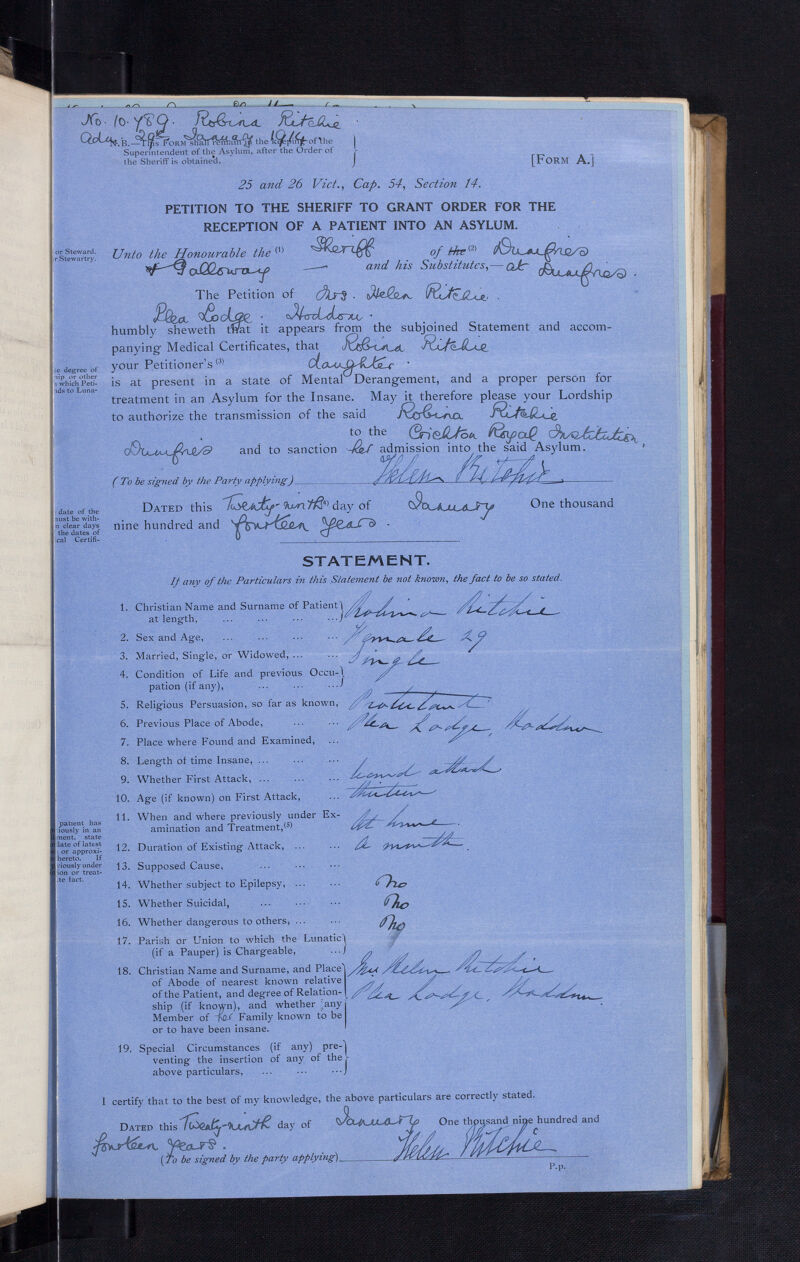 No. 10.789. Robina Ritchie
Adm. 29th January 1914
N.B.—This FORM shall remain in the keeping of the
Superintendent of the Asylum, after the Order of
the Sheriff is obtained.
[FORM A.]
25 and 26 Vict., Cap. 54, Section 14.
PETITION TO THE SHERIFF TO GRANT ORDER FOR THE
RECEPTION OF A PATIENT INTO AN ASYLUM.
or Steward.
r Stewartry.
Unto the Honourable the (1) Sheriff of the (2) Dumfries
& Galloway — and his Substitutes,— at Dumfries.
The Petition of Mrs. Helen Ritchie.
Lodge. Hoddom.
humbly sheweth that it appears from the subjoined Statement and accom-
panying Medical Certificates, that Robina Ritchie
e degree of
ip or other
which Peti-
ds to Luna-
your Petitioner's (3) daughter.
is at present in a state of Mental Derangement, and a proper person for
treatment in an Asylum for the Insane. May it therefore please your Lordship
to authorize the transmission of the said Robina Ritchie
to the Crichton Royal Institution,
Dumfries and to sanction her admission into the said Asylum.
(To be signed by the Party applying) Helen Ritchie
date of the
must be with-
n clear days
the dates of
cal Certifi-
DATED this Twenty-ninth (4) day of January One thousand
nine hundred and fourteen years.
STATEMENT.
If any of the Particulars in this Statement be not known, the fact to be so stated.
1. Christian Name and Surname of Patient
at length, ... Robina Ritchie
2. Sex and Age, ... Female 29
3. Married, Single, or Widowed, ... Single
4. Condition of Life and previous Occu-
pation (if any), ...
5. Religious Persuasion, so far as known, Protestant
6. Previous Place of Abode, ... Lodge, Hoddom
7. Place where Found and Examined, ...
8. Length of time Insane, ...
9. Whether First Attack, ... Second attack
10. Age (if known) on First Attack, ... thirteen
patient has
iously in an
ment, state
date of latest
or approxi-
hereto. If
iously under
ion or treat-
te fact.
11. When and where previously under Ex-
amination and Treatment, (5) At home.
12. Duration of Existing Attack, ... A month.
13. Supposed Cause, ...
14. Whether subject to Epilepsy, ... No
15. Whether Suicidal, ... No
16. Whether dangerous to others, ... No
17. Parish or Union to which the Lunatic
(if a Pauper) is Chargeable, ...
18. Christian Name and Surname, and Place
of Abode of nearest known relative
of the Patient, and degree of Relation-
ship (if known), and whether any
Member of her Family known to be
or to have been insane.
Mrs Helen Ritchie
Lodge, Hoddom
19. Special Circumstances (if any) pre-
venting the insertion of any of the
above particulars, ...
I certify that to the best of my knowledge, the above particulars are correctly stated.
DATED this Twenty-ninth day of January One thousand nine hundred and
fourteen years.
(To be signed by the party applying) Helen Ritchie
P.p.